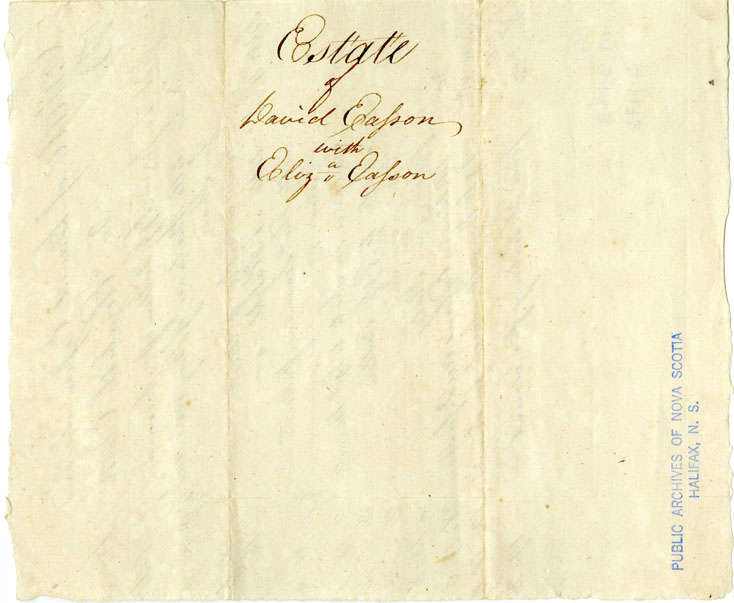 Estate
of
David Easson
with
Eliz.a Easson
PUBLIC ARCHIVES OF NOVA SCOTIA
HALIFAX, N. S.